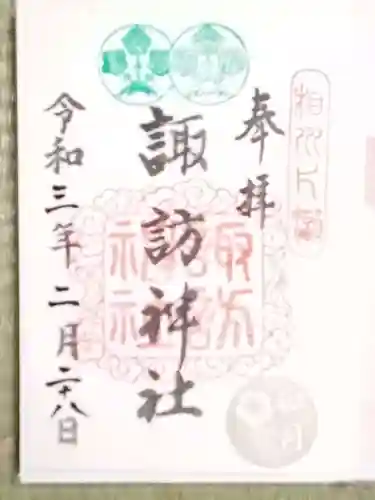 奉拝
諏訪神社
令和三年二月二十八日
諏訪
神社